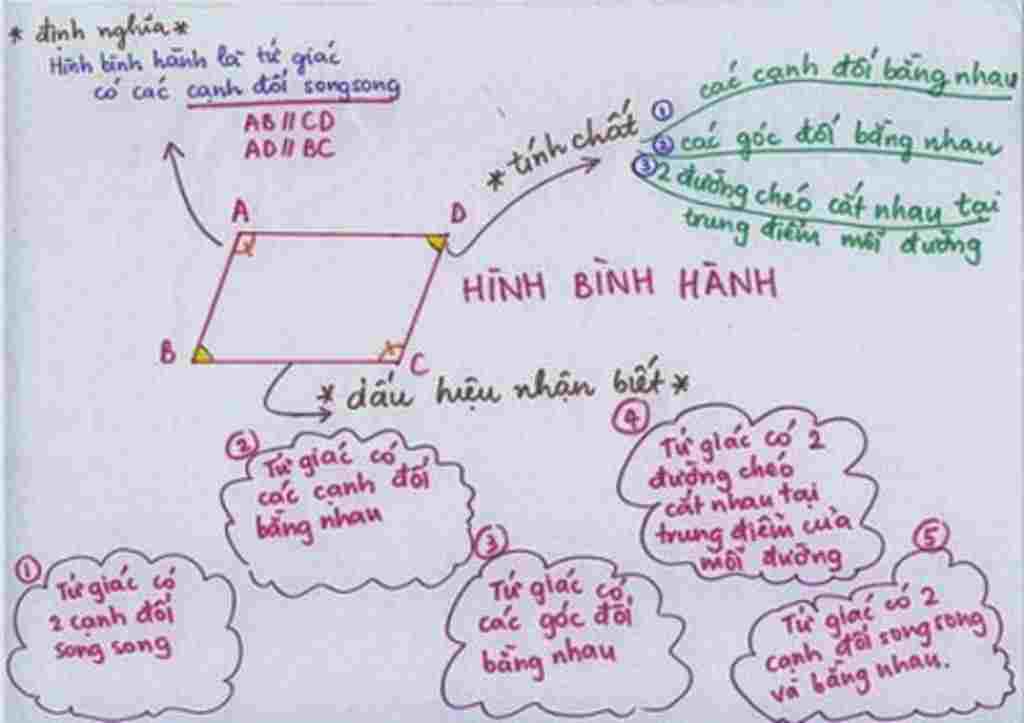 * định nghĩa *
Hình bình hành là tứ giác
có các cạnh đối songsong
AB // CD
AD // BC
* tính chất
① các cạnh đối bằng nhau
② các góc đối bằng nhau
③ 2 đường chéo cắt nhau tại
trung điểm mỗi đường
A
D
B
C
HÌNH BÌNH HÀNH
* dấu hiệu nhận biết *
①
Tứ giác có
2 cạnh đối
song song
②
Tứ giác có
các cạnh đối
bằng nhau
③
Tứ giác có
các góc đối
bằng nhau
④
Tứ giác có 2
đường chéo
cắt nhau tại
trung điểm của
mỗi đường
⑤
Tứ giác có 2
cạnh đối song song
và bằng nhau.